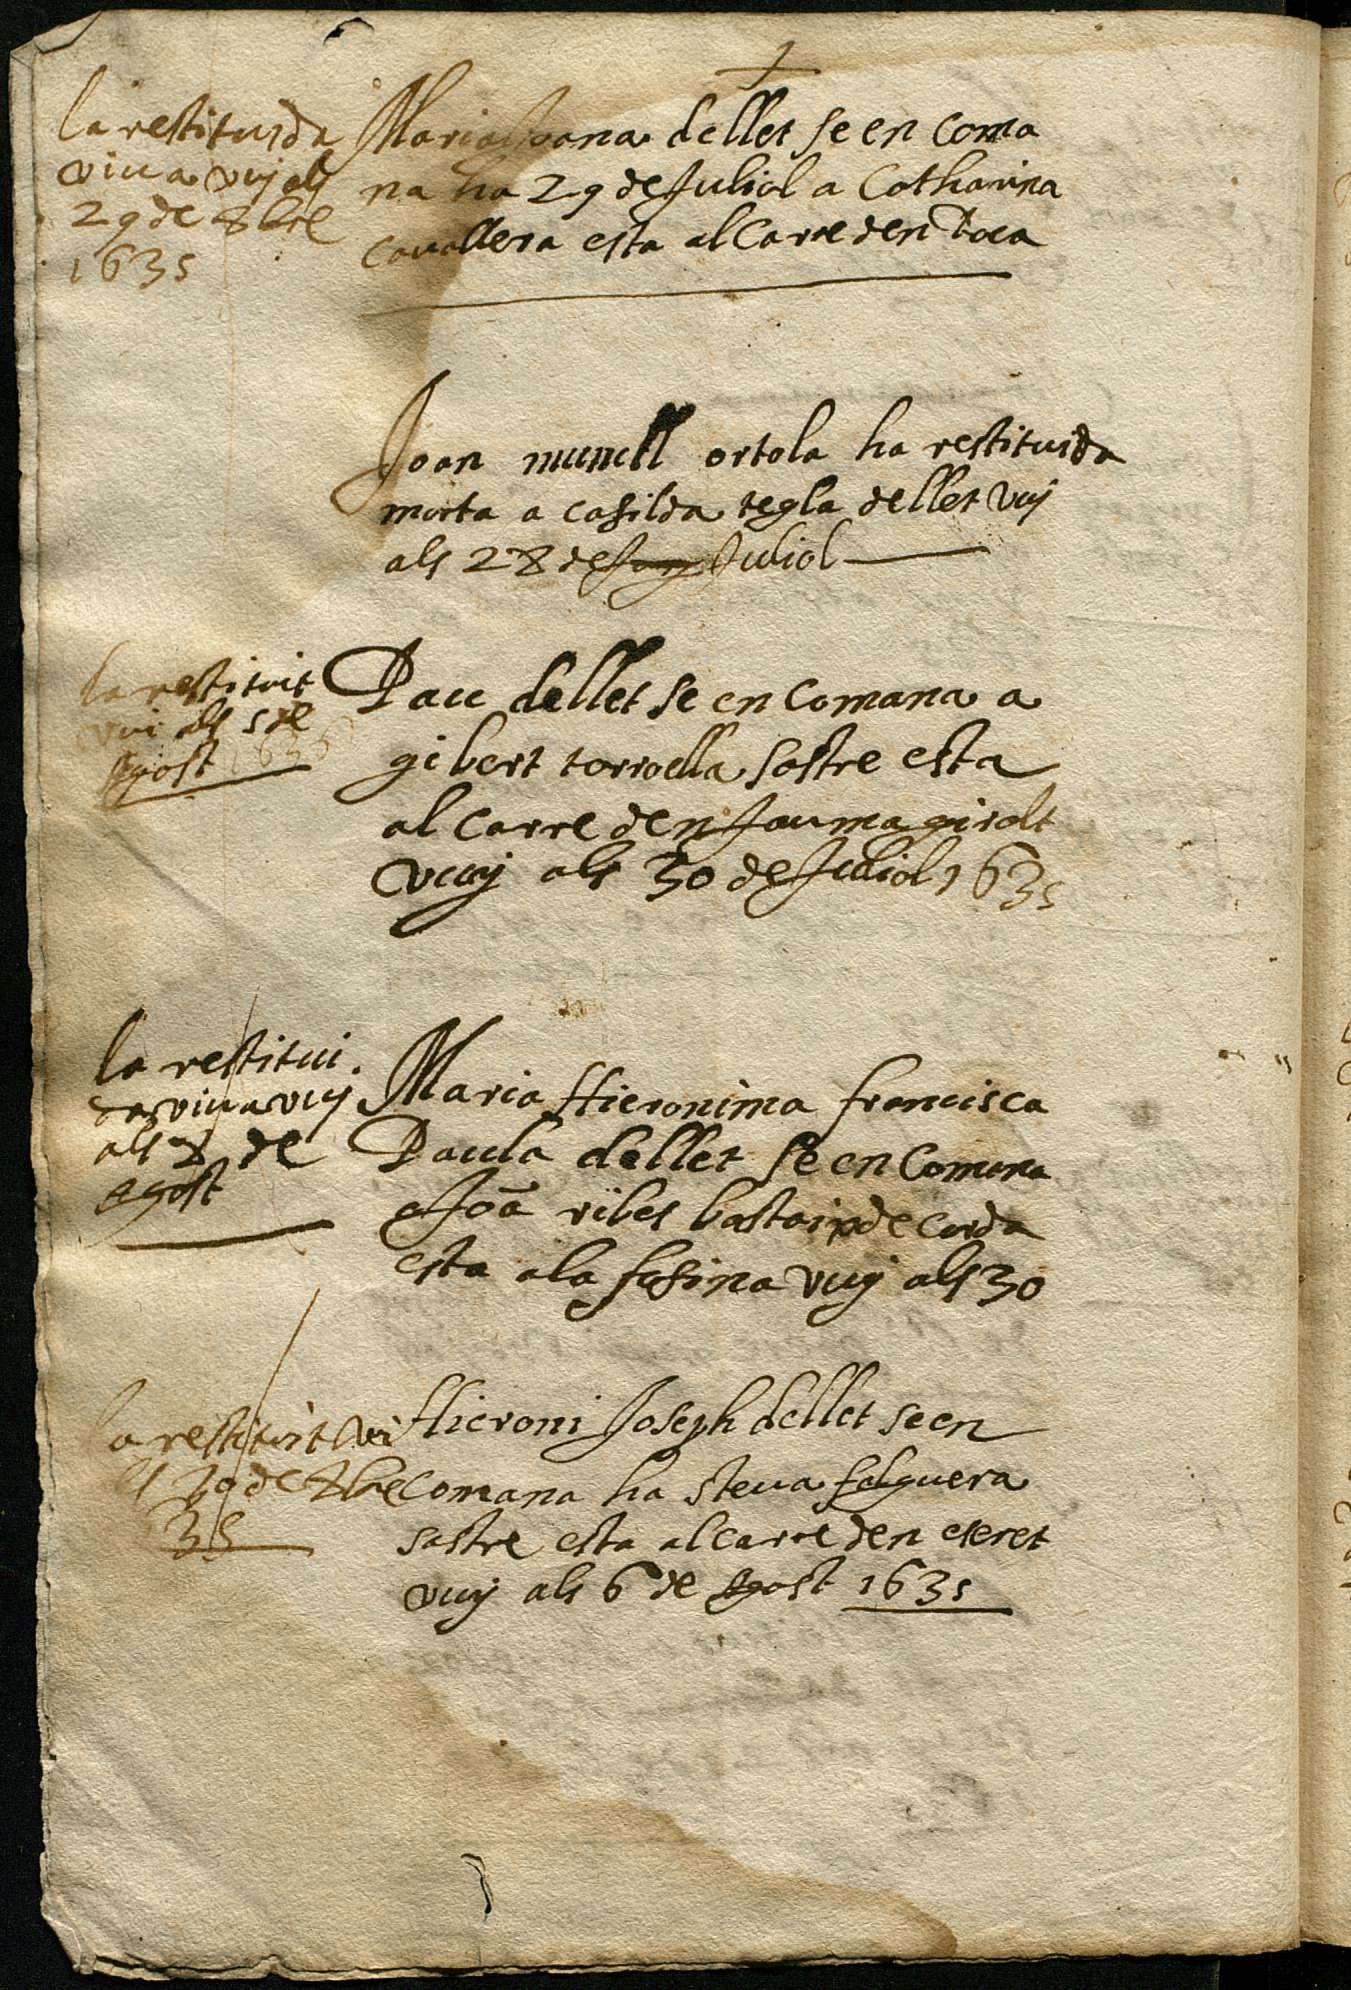 la restituida
viua vuy als
29 de 8bre
1635
Maria Joana dellet se en coma
na ha 29 de Juliol a Catharina
Cavallera esta al Carre den Roca
Joan munell ortola ha restituida
morta a casilda tegla dellet vuy
als 28 de Juny Juliol
la restituit
vui als 5 de
Agost 1635
Pau dellet se en comana a
gibert torroella sastre esta
al carre den Jauma giralt
vuuy als 30 de Juliol 1635
la restitui
da viua vuy
als 8 de
Agost
Maria Hieronima francisca
Paula dellet se en Comana
a Joā ribes bastaix de corda
esta a la fusina vuy als 30
la restituit vui
als 29 de 8bre
35
Hieroni Joseph dellet se en
Comana ha steua falguera
sastre esta al carre den
vuy als 6 de Agost 1635